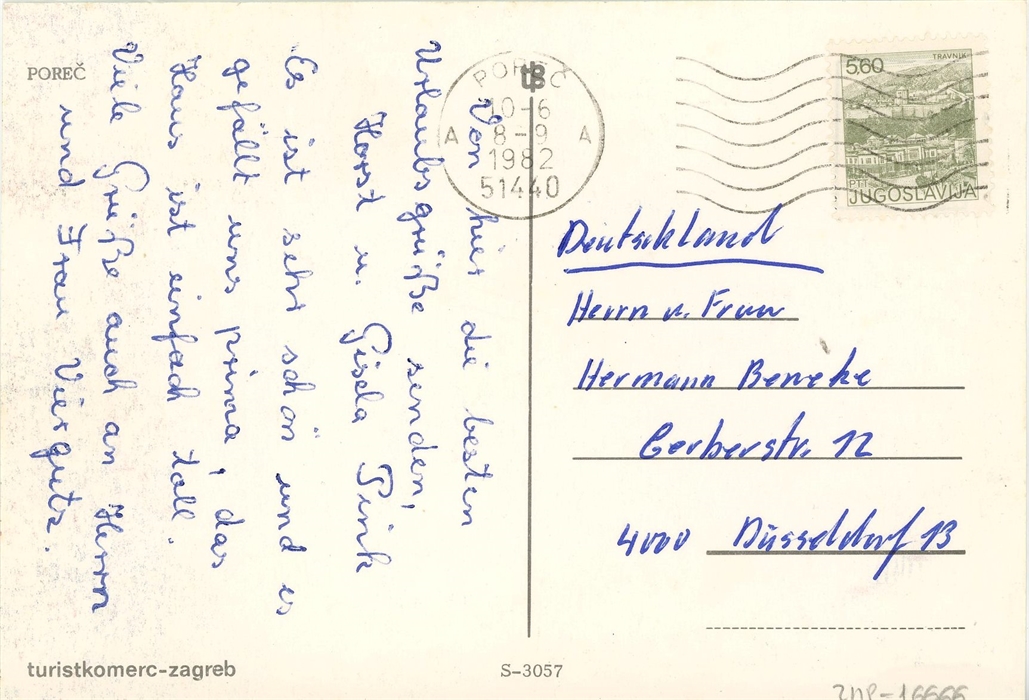 POREČ
Von hier die besten
Urlaubsgrüße senden,
Horst u. Gisela Pink
Es ist sehr schön und es
gefällt uns prima, das
Haus ist einfach toll.
Viele Grüße auch an Herrn
und Frau Vierguts.
POREČ
10-6
A 8-9 A
1982
51440
TRAVNIK
5,60
PTT
JUGOSLAVIJA
Deutschland
Herrn u. Frau
Hermann Beneke
Gerberstr. 12
4000 Düsseldorf 13
turistkomerc-zagreb
S-3057